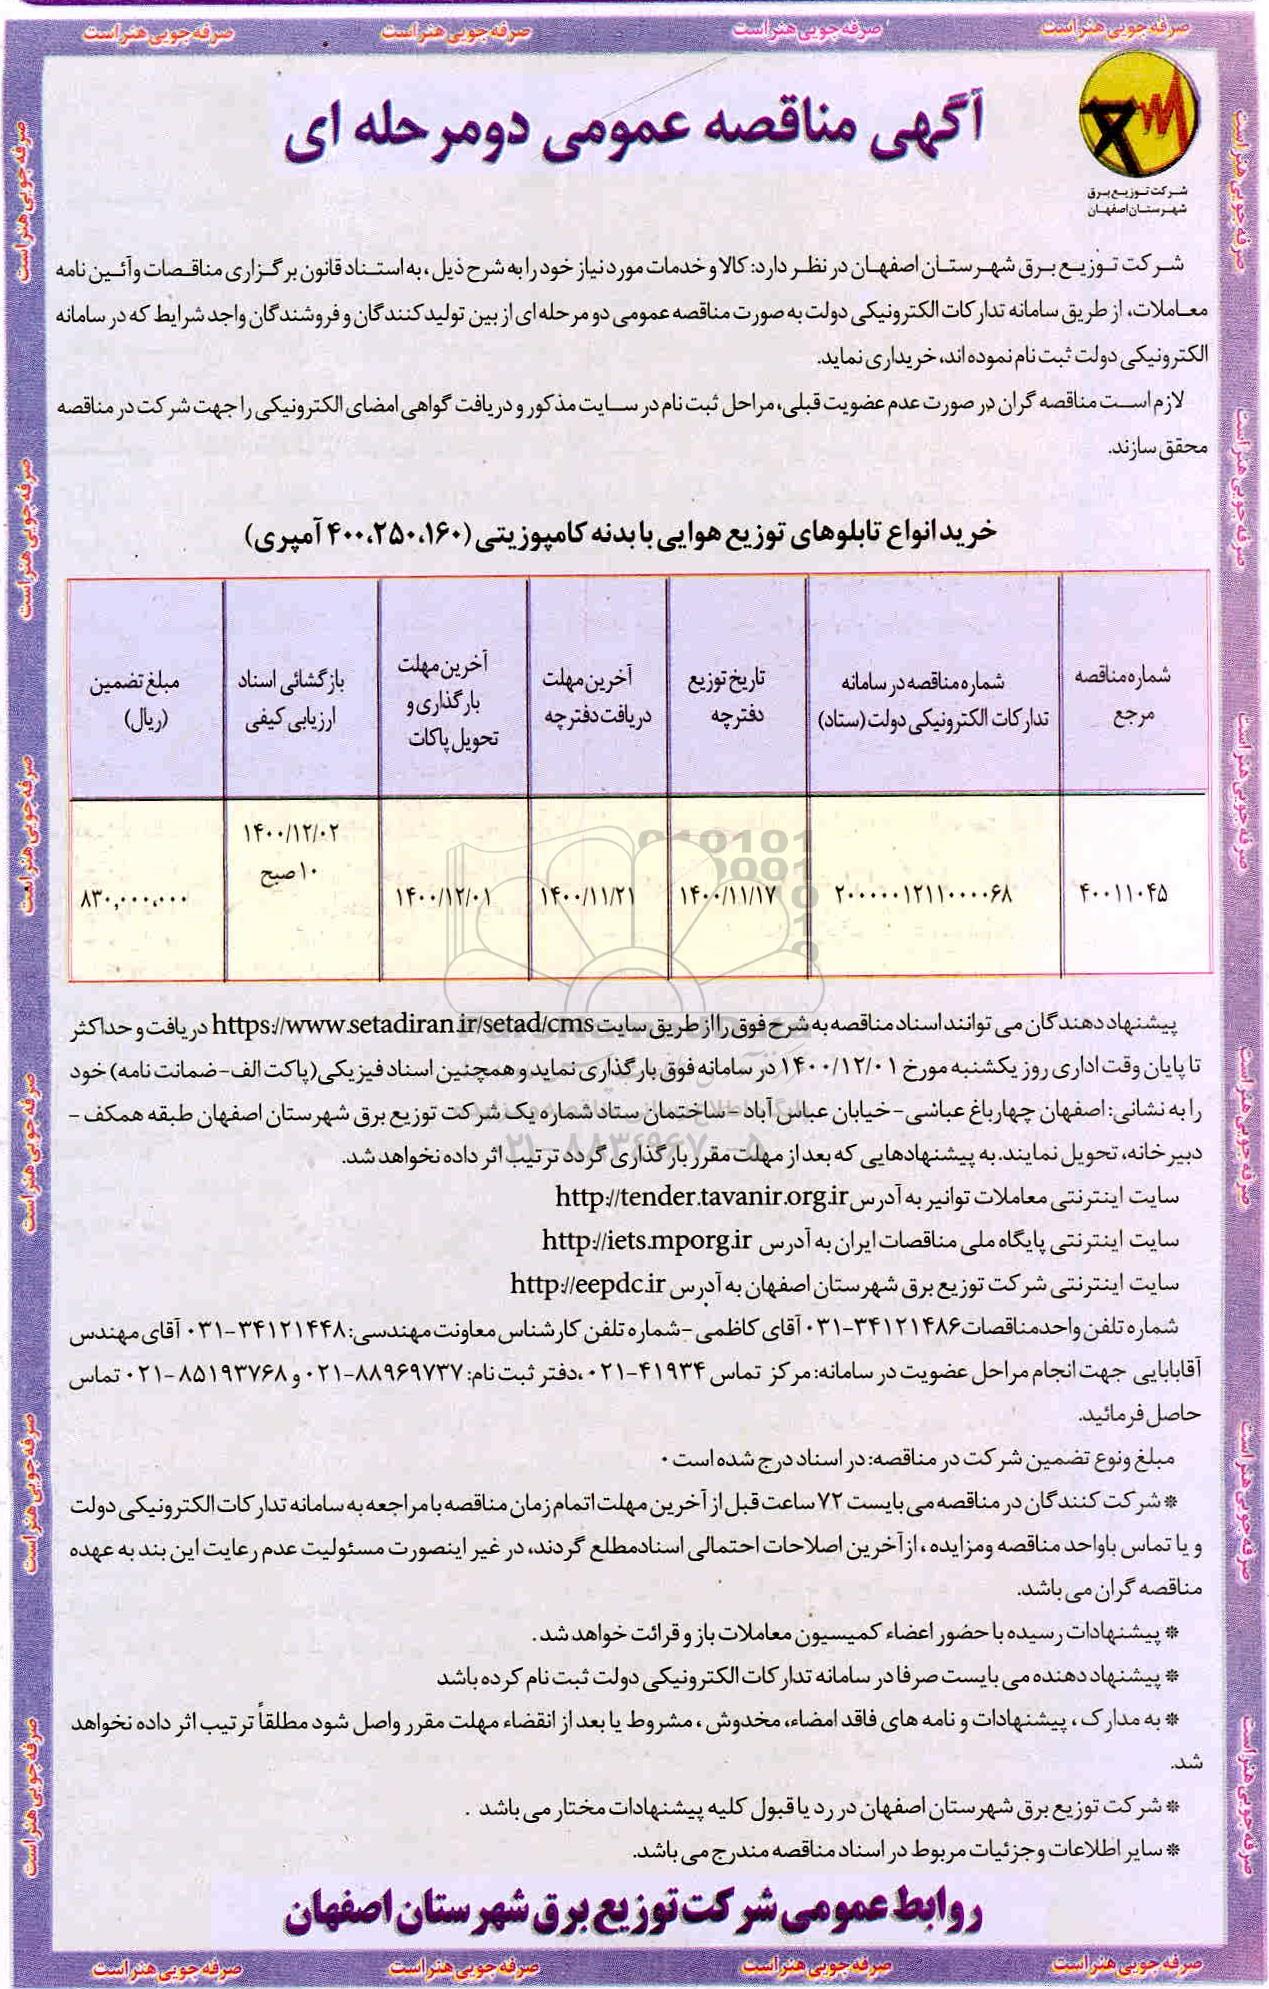 صرفه جویی هنر است صرفه جویی هنر است صرفه جویی هنر است صرفه جویی هنر است
آگهی مناقصه عمومی دومرحله ای
شرکت توزیع برق
شهرستان اصفهان
شرکت توزیع برق شهرستان اصفهان در نظر دارد: کالا و خدمات مورد نیاز خود را به شرح ذیل، به استناد قانون برگزاری مناقصات و آئین نامه
معاملات، از طریق سامانه تدارکات الکترونیکی دولت به صورت مناقصه عمومی دو مرحله ای از بین تولید کنندگان و فروشندگان واجد شرایط که در سامانه
الکترونیکی دولت ثبت نام نموده اند، خریداری نماید.
لازم است مناقصه گران در صورت عدم عضویت قبلی، مراحل ثبت نام در سایت مذکور و دریافت گواهی امضای الکترونیکی را جهت شرکت در مناقصه
محقق سازند.
خرید انواع تابلوهای توزیع هوایی با بدنه کامپوزیتی (۴۰۰،۲۵۰،۱۶۰ آمپری)
شماره مناقصه مرجع
شماره مناقصه در سامانه تدارکات الکترونیکی دولت (ستاد)
تاریخ توزیع دفترچه
آخرین مهلت دریافت دفترچه
آخرین مهلت بارگذاری و تحویل پاکات
بازگشائی اسناد ارزیابی کیفی
مبلغ تضمین (ریال)
۴۰۰۱۱۰۴۵
۲۰۰۰۰۰۱۲۱۱۰۰۰۰۶۸
۱۴۰۰/۱۱/۱۷
۱۴۰۰/۱۱/۲۱
۱۴۰۰/۱۲/۰۱
۱۴۰۰/۱۲/۰۲
۱۰ صبح
۸۳۰,۰۰۰,۰۰۰
پیشنهاد دهندگان می توانند اسناد مناقصه به شرح فوق را از طریق سایت https://www.setadiran.ir/setad/cms دریافت و حداکثر
تا پایان وقت اداری روز یکشنبه مورخ ۱۴۰۰/۱۲/۰۱ در سامانه فوق بارگذاری نماید و همچنین اسناد فیزیکی (پاکت الف-ضمانت نامه) خود
را به نشانی: اصفهان چهارباغ عباسی- خیابان عباس آباد - ساختمان ستاد شماره یک شرکت توزیع برق شهرستان اصفهان طبقه همکف -
دبیرخانه، تحویل نمایند. به پیشنهادهایی که بعد از مهلت مقرر بارگذاری گردد ترتیب اثر داده نخواهد شد.
سایت اینترنتی معاملات توانیر به آدرس http://tender.tavanir.org.ir
سایت اینترنتی پایگاه ملی مناقصات ایران به آدرس http://iets.mporg.ir
سایت اینترنتی شرکت توزیع برق شهرستان اصفهان به آدرس http://eepdc.ir
شماره تلفن واحد مناقصات ۳۴۱۲۱۴۸۶-۰۳۱ آقای کاظمی - شماره تلفن کارشناس معاونت مهندسی: ۳۴۱۲۱۴۴۸-۰۳۱ آقای مهندس
آقابابایی جهت انجام مراحل عضویت در سامانه: مرکز تماس ۴۱۹۳۴-۰۲۱، دفتر ثبت نام: ۸۸۹۶۹۷۳۷-۰۲۱ و ۸۵۱۹۳۷۶۸-۰۲۱ تماس
حاصل فرمائید.
مبلغ ونوع تضمین شرکت در مناقصه: در اسناد درج شده است.
* شرکت کنندگان در مناقصه می بایست ۷۲ ساعت قبل از آخرین مهلت اتمام زمان مناقصه با مراجعه به سامانه تدارکات الکترونیکی دولت
و یا تماس باواحد مناقصه ومزایده، ازآخرین اصلاحات احتمالی اسنادمطلع گردند، در غیر اینصورت مسئولیت عدم رعایت این بند به عهده
مناقصه گران می باشد.
* پیشنهادات رسیده با حضور اعضاء کمیسیون معاملات باز و قرائت خواهد شد.
* پیشنهاد دهنده می بایست صرفا در سامانه تدارکات الکترونیکی دولت ثبت نام کرده باشد
* به مدارک، پیشنهادات و نامه های فاقد امضاء، مخدوش، مشروط یا بعد از انقضاء مهلت مقرر واصل شود مطلقاً ترتیب اثر داده نخواهد
شد.
* شرکت توزیع برق شهرستان اصفهان در رد یا قبول کلیه پیشنهادات مختار می باشد.
* سایر اطلاعات وجزئیات مربوط در اسناد مناقصه مندرج می باشد.
روابط عمومی شرکت توزیع برق شهرستان اصفهان
صرفه جویی هنر است صرفه جویی هنر است صرفه جویی هنر است صرفه جویی هنر است